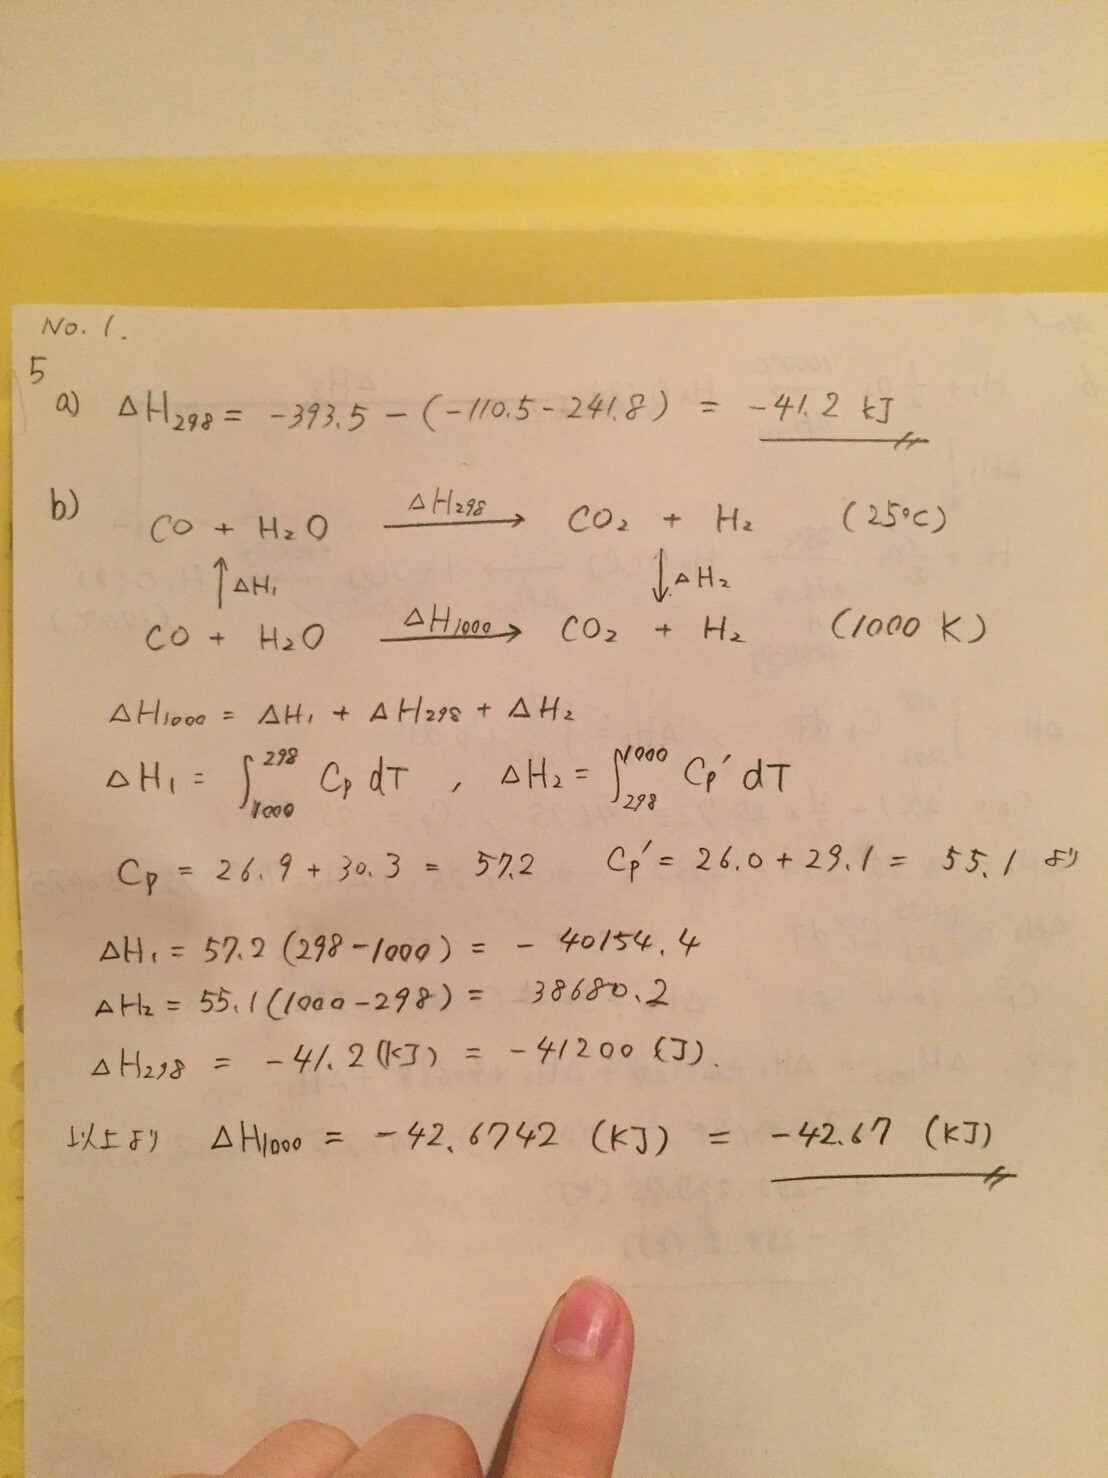 No. 1.
5
a) ΔH298 = -393.5 - (-110.5 - 241.8) = -41.2 kJ
b)
CO + H2O ΔH298→ CO2 + H2 (25℃)
↑ΔH1 ↓ΔH2
CO + H2O ΔH1000→ CO2 + H2 (1000 K)
ΔH1000 = ΔH1 + ΔH298 + ΔH2
ΔH1 = ∫_1000^298 Cp dT , ΔH2 = ∫_298^1000 Cp' dT
Cp = 26.9 + 30.3 = 57.2 Cp' = 26.0 + 29.1 = 55.1 より
ΔH1 = 57.2 (298-1000) = - 40154.4
ΔH2 = 55.1 (1000-298) = 38680.2
ΔH298 = -41.2 (kJ) = -41200 (J).
以上より ΔH1000 = -42.6742 (KJ) = -42.67 (KJ)